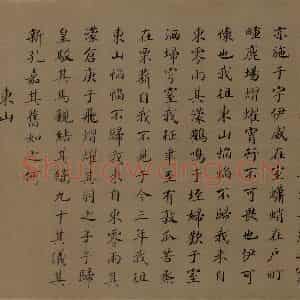 亦施于宇伊威在室蠨蛸在戶町
畽鹿場熠燿宵行不可畏也伊可
懷也我徂東山慆慆不歸我來自
東零雨其濛鸛鳴于垤婦歎于室
洒埽穹窒我征聿至有敦瓜苦烝
在栗薪自我不見于今三年我徂
東山慆慆不歸我來自東零雨其
濛倉庚于飛熠燿其羽之子于歸
皇駁其馬親結其縭九十其儀其
新孔嘉其舊如之何
東山
Shufawang.cn